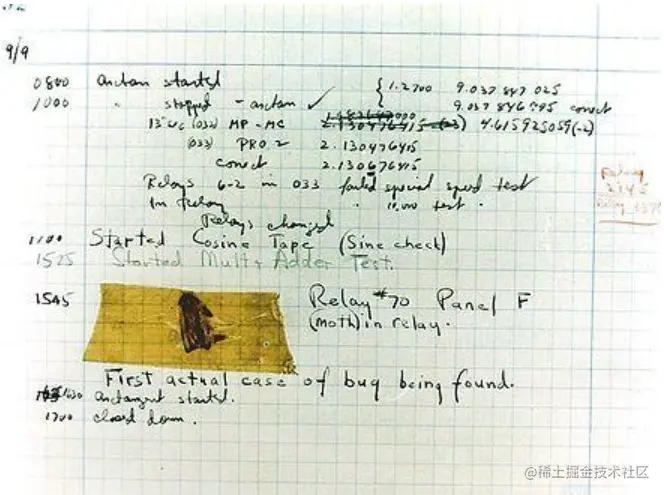 9/9
0800 arctan started
1000 " stopped - arctan ✓ { 1.2700 9.037 847 025
9.037 846 795 correct
13"uc (032) MP - MC 2.130476415 (-3) 4.615925059(-2)
(033) PRO 2 2.130476415
correct 2.130676415
Relays 6-2 in 033 failed special speed test
In Relay " 10,000 test .
Relay
2145
Relay 3370
Relays changed
1100 Started Cosine Tape (Sine check)
1525 Started Mult+Adder Test.
1545 Relay #70 Panel F
(moth) in relay.
First actual case of bug being found.
1630 arctangent started.
1700 closed down.
@稀土掘金技术社区